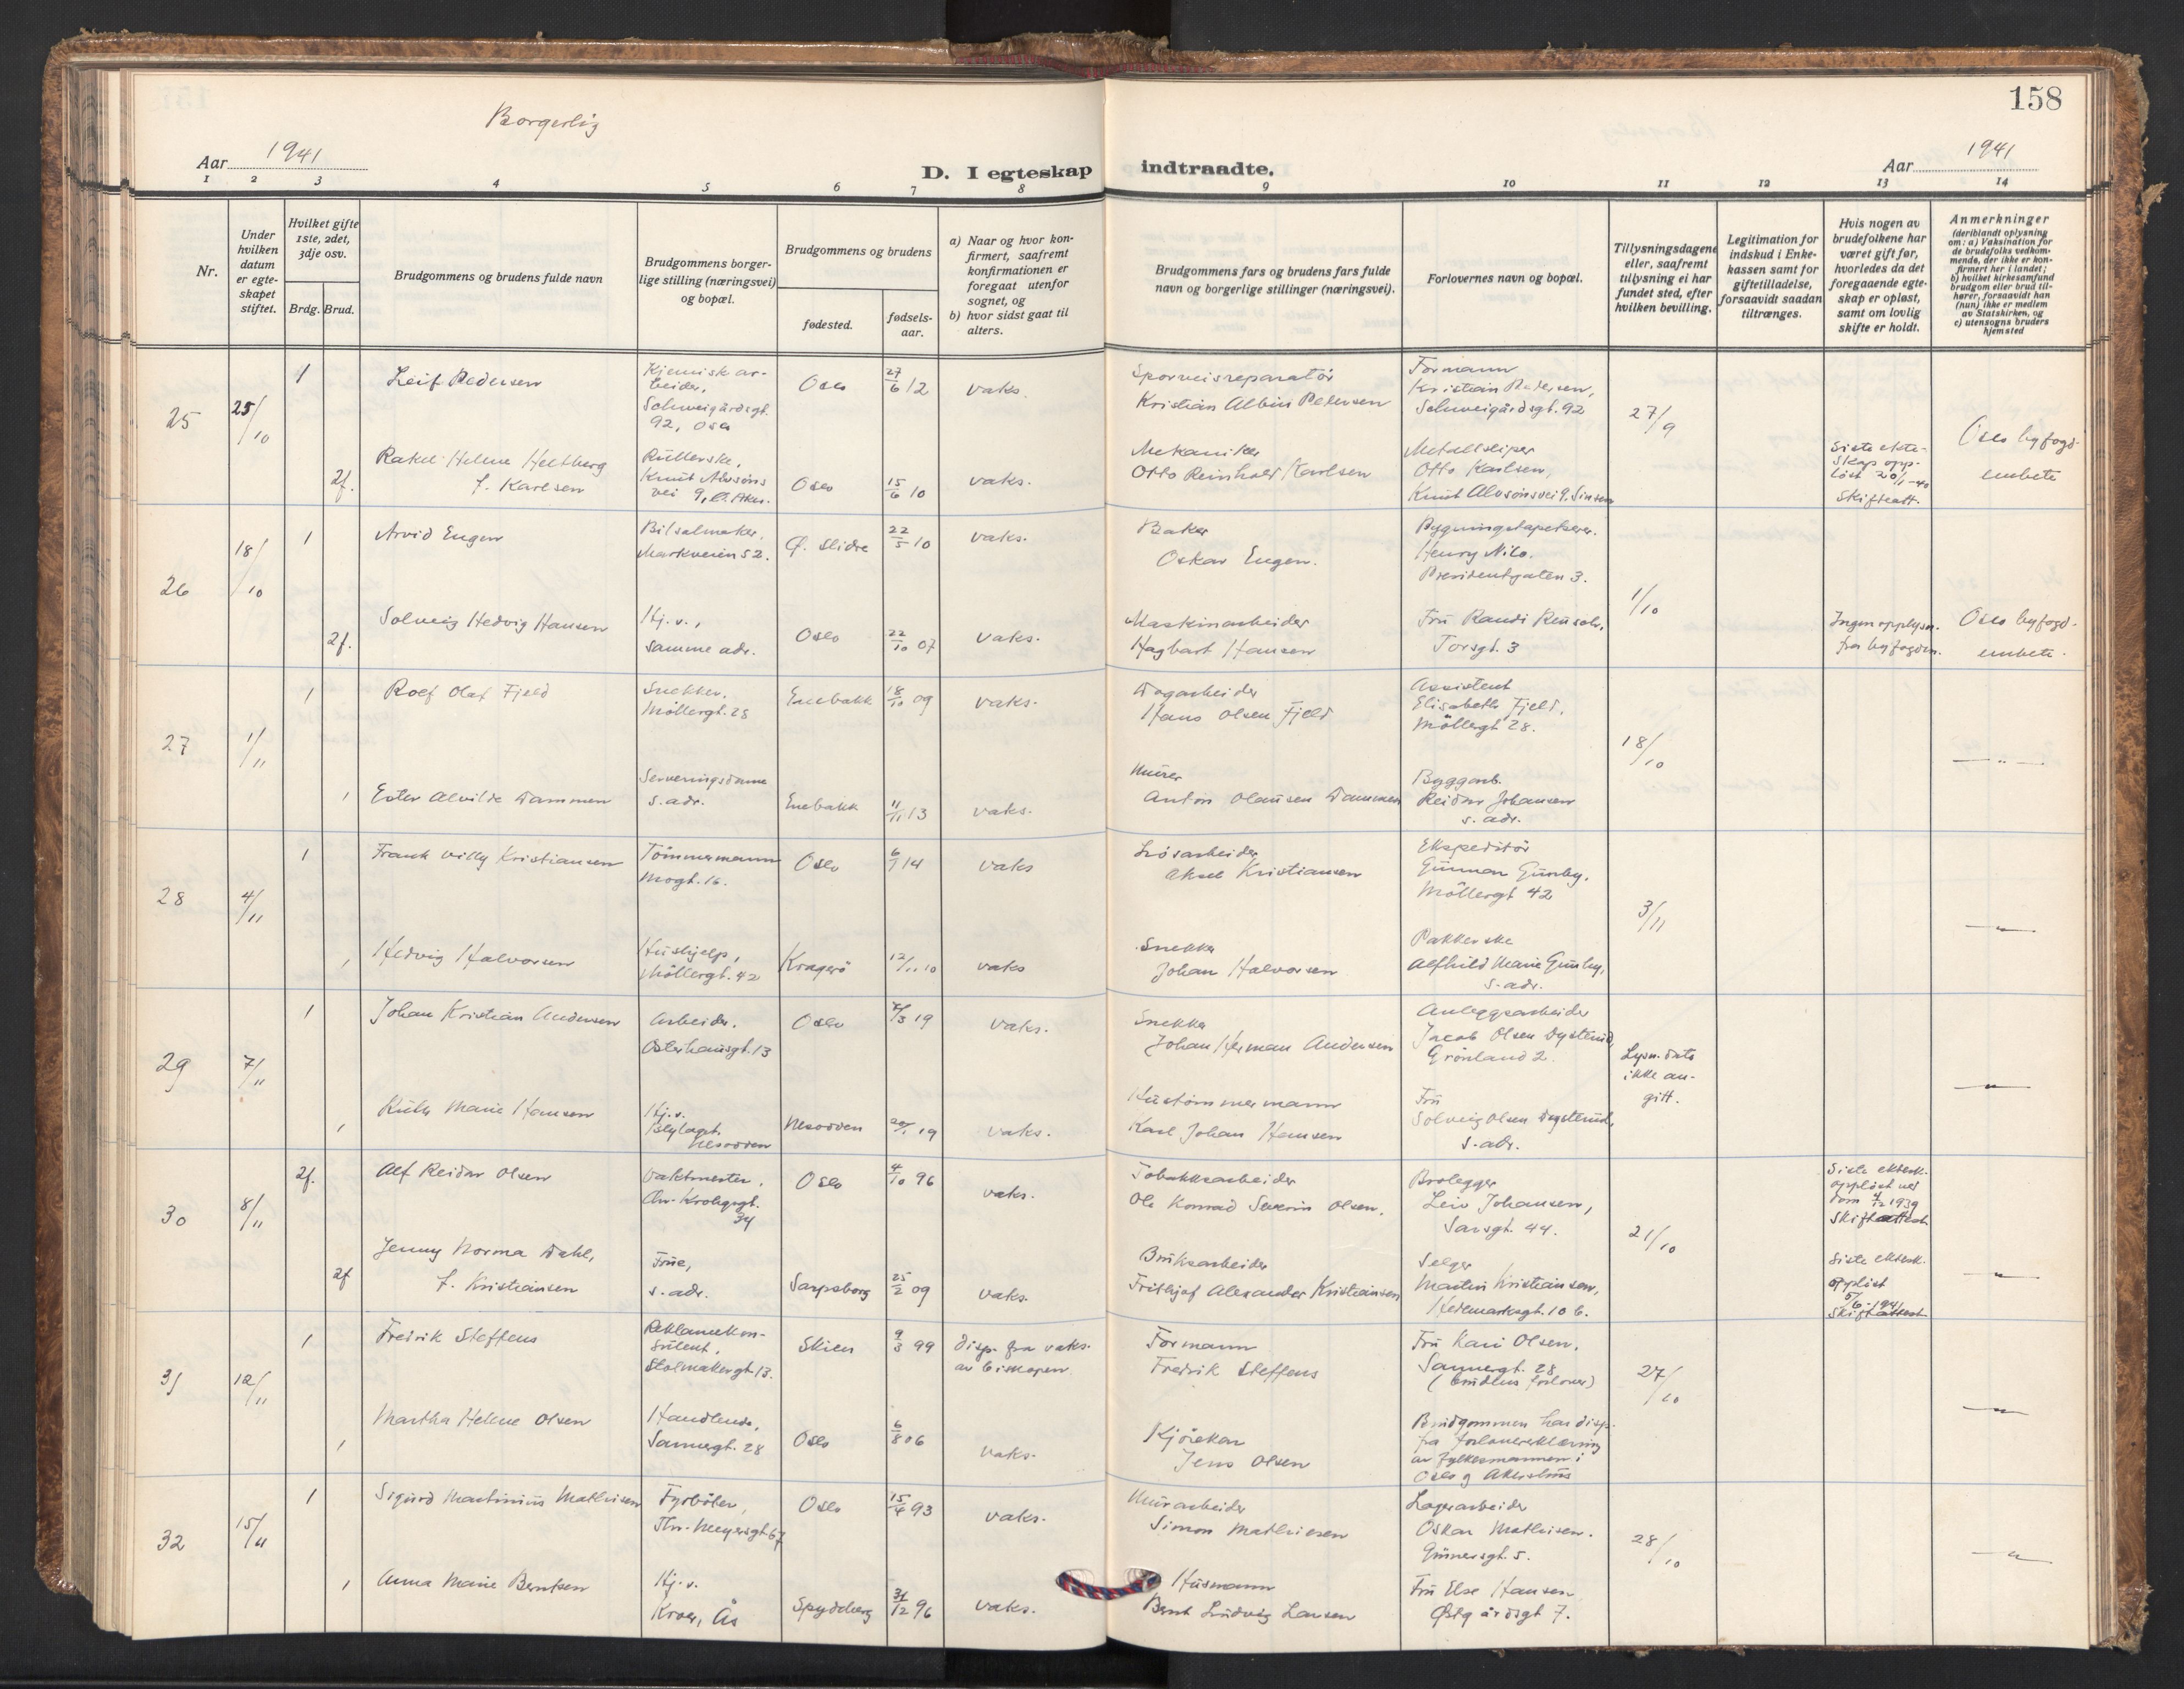 158
Borgerlig
Aar 1941
D. I egteskap indtraadte.
Aar 1941
1 2 3 4 5 6 7 8 9 10 11 12 13 14
Nr.
Under hvilken datum er egteskapet stiftet.
Hvilket gifte 1ste, 2det, 3dje osv.
Brdg. Brud.
Brudgommens og brudens fulde navn
Brudgommens borgerlige stilling (næringsvei) og bopæl.
Brudgommens og brudens
fødested.
fødselsaar.
a) Naar og hvor konfirmert, saafremt konfirmationen er foregaat utenfor sognet, og
b) hvor sidst gaat til alters.
Brudgommens fars og brudens fars fulde navn og borgerlige stillinger (næringsvei).
Forlovernes navn og bopæl.
Tillysningsdagene eller, saafremt tillysning ei har fundet sted, efter hvilken bevilling.
Legitimation for indskud i Enkekassen samt for giftetilladelse, forsaavidt saadan tiltrænges.
Hvis nogen av brudefolkene har været gift før, hvorledes da det foregaaende egteskap er opløst, samt om lovlig skifte er holdt.
Anmerkninger
(deriblandt oplysning om: a) Vaksination for de brudefolks vedkommende, der ikke er konfirmert her i landet; b) hvilket kirkesamfund brudgom eller brud tilhører, forsaavidt han (hun) ikke er medlem av Statskirken, og c) utensogns bruders hjemsted
25
25/10
1
Leif Pedersen
Kjemisk arbeider,
Schweigårdsgt. 92, Oslo
Oslo
27/6 12
vaks.
Sporveisreparatör
Kristian Albin Pedersen
Formann
Kristian Pedersen,
Schweigårdsgt. 92
27/9
2f.
Rakel Helene Heltberg
f. Karlsen
Rullerske,
Knut Alvsons vei 9, Ø. Aker.
Oslo
15/6 10
vaks.
Mekaniker
Otto Reinhold Karlsen
Metallsliper
Otto Karlsen,
Knut Alvsonsvei 9. Sinsen
Siste ekteskap oppløst 20/1-40
Skifteatt.
Oslo byfogdembete
26
18/10
1
Arvid Engen
Bilsalmaker,
Markveien 52.
Ø. Slidre
22/5 10
vaks.
Baker
Oskar Engen.
Bygningstapetserer.
Henry Nilo.
Presidentgaten 3.
1/10
2f.
Solveig Hedvig Hansen
Hj.v.,
samme adr.
Oslo
22/10 07
vaks.
Maskinarbeider
Hagbart Hansen
Fru Randi Reusch,
Torsgt. 3
Ingen opplysn.
fra byfogden.
Oslo byfogdembete.
27
1/11
1
Rolf Olaf Fjeld
Snekker,
Möllergt. 28
Enebakk
18/10 09
vaks.
Dagarbeider
Hans Olsen Fjeld
Assistent
Elisabeth Fjeld,
Möllergt 28.
18/10
1
Ester Alvilde Dammen
Serveringsdame
s. adr.
Enebakk
11/11 13
vaks.
Murer
Anton Olausen Dammen
Byggarb.
Reidar Johansen
s. adr.
— " —
28
4/11
1
Frank Willy Kristiansen
Tömmermann
Mogt. 16.
Oslo
6/1 14
vaks
Løsarbeider
Aksel Kristiansen
Ekspeditör
Gunnar Gunby,
Möllergt 42
3/11
1
Hedvig Halvorsen
Hushjelp,
Möllergt. 42
Kragerö
12/11 10
vaks
Snekker
Johan Halvorsen
Pakkerske
Alfhild Marie Gunby,
s. adr.
— " —
29
7/11
1
Johan Kristian Andersen
Arbeider.
Osterhausgt. 13
Oslo
/3 19
vaks.
Snekker
Johan Herman Andersen
Anleggsarbeider
Jacob Olsen Dysterud,
Grönland 2.
Lysn. dato ikke angitt.
1
Ruth Marie Hansen
Hj.v.
Nesodden
Nesodden
19
vaks.
Hustömmermann
Karl Johan Hansen
Fru
Solveig Olsen Dysterud,
s. adr.
— " —
30
8/11
2f.
Alf Reidar Olsen
Vaktmester,
Chr. Krohgsgt. 34
Oslo
4/10 96
vaks.
Tobakksarbeider
Ole Konrad Severin Olsen.
Brolegger
Leiv Johansen,
Sarsgt. 44.
21/10
Siste ektesk.
oppløst ved
dom 4/2 1939
Skifteattest
2f
Jenny Norma Dahl,
f. Kristiansen
Frue,
s. adr.
Sarpsborg
25/2 09
vaks.
Bruksarbeider
Frithjof Alexander Kristiansen
Selger
Martin Kristiansen,
Hedemarksgt. 10 b.
Siste ektesk.
oppløst
5/6-1941
Skifteattest
— " —
31
12/11
1
Fredrik Steffens
Reklamekonsulent,
Stolmakergt. 13.
Skien
9/3 99
disp. fra vaks.
av biskopen
Formann
Fredrik Steffens
Fru Kari Olsen,
Sannergt. 28
(brudens forlover)
27/10
1
Martha Helene Olsen
Handlende,
Sannergt. 28
Oslo
6/8 06
vaks.
Kjörekar
Jens Olsen
Brudgommen har disp.
fra forlovererklæring
av fylkesmannen i
Oslo og Akershus
— " —
32
15/11
1
Sigurd Martinius Mathisen
Fyrböter,
Thv. Meyersgt 67
Oslo
15/4 93
vaks.
Murarbeider
Simon Mathiesen
Lagerarbeider
Oskar Mathisen.
Grünersgt. 5.
28/10
1
Anna Marie Berntsen
Hj.v.
Kroer, Ås
Spydeberg
31/12 96
vaks.
Husmann
Bernt Ludvig Larsen
Fru Else Hansen
Østgårdsgt 7.
— " —